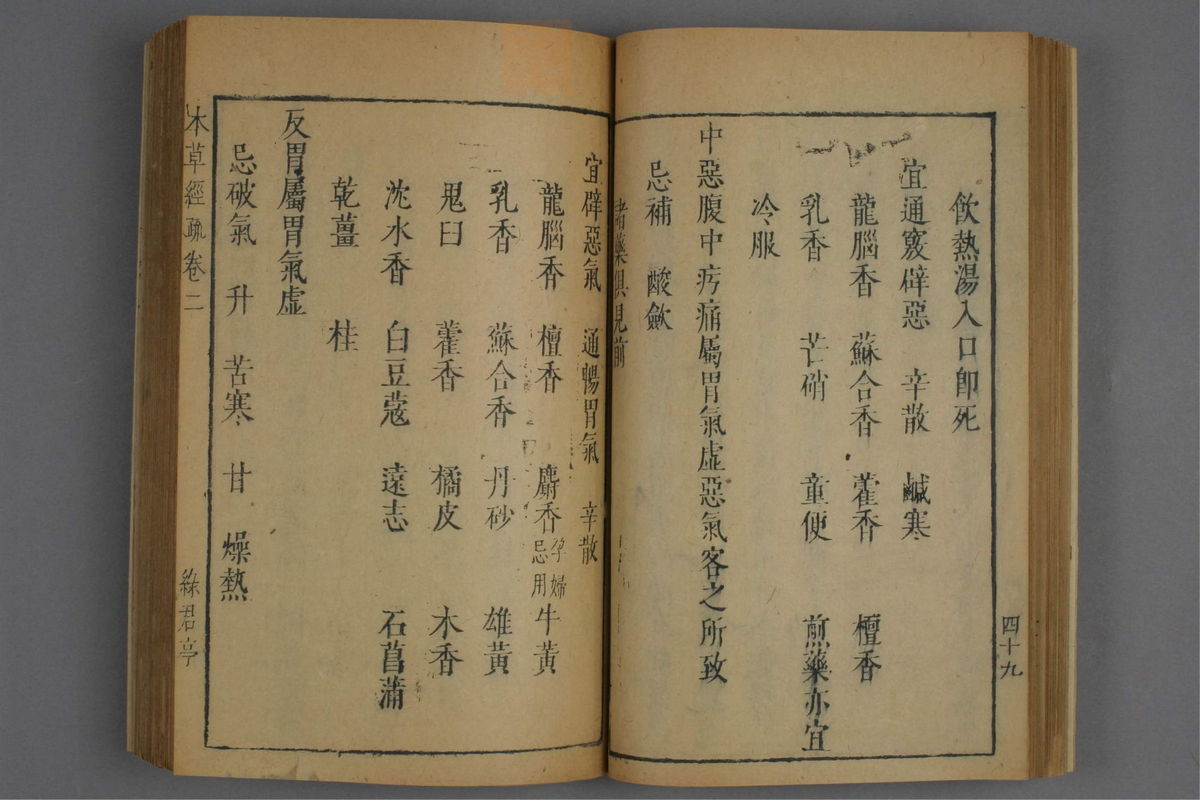 飲熱湯入口即死
宜通竅辟惡　辛散　鹹寒
龍腦香　蘇合香　藿香　檀香
乳香　芒硝　童便　煎藥亦宜
冷服
中惡腹中㽲痛屬胃氣虛惡氣客之所致
忌補　酸歛
諸藥俱見前
四十九
宜辟惡氣　通暢胃氣　辛散
龍腦香　檀香　麝香孕婦忌用　牛黃
乳香　蘇合香　丹砂　雄黃
鬼臼　藿香　橘皮　木香
沈水香　白豆蔻　遠志　石菖蒲
乾薑　桂
反胃屬胃氣虛
忌破氣　升　苦寒　甘　燥熱
本草經疏卷二
綠君亭